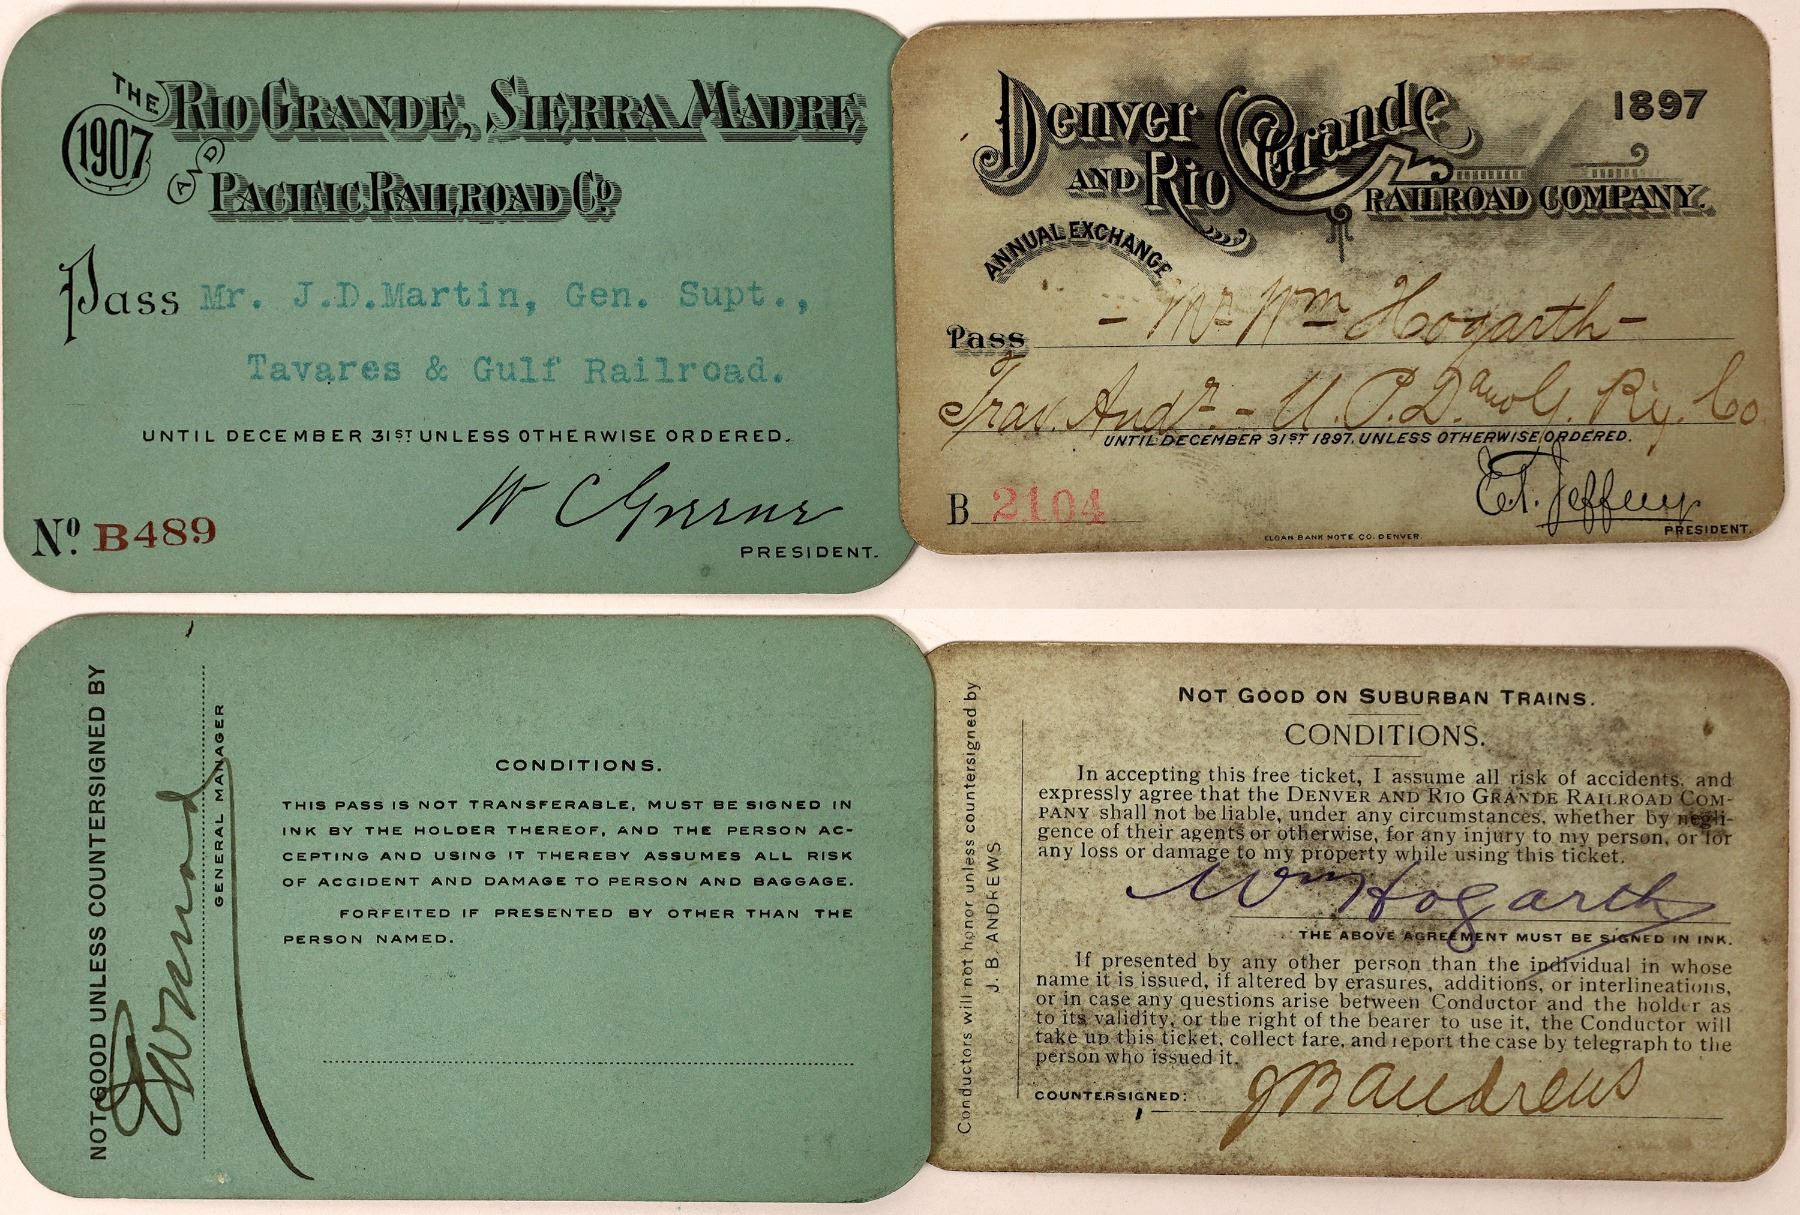 THE RIO GRANDE, SIERRA MADRE
1907 AND
PACIFIC RAILROAD CO.
Pass Mr. J.D.Martin, Gen. Supt.,
Tavares & Gulf Railroad.
UNTIL DECEMBER 31ST UNLESS OTHERWISE ORDERED.
W C Greene
No. B489
PRESIDENT.
Denver 1897
AND Rio Grande
RAILROAD COMPANY.
ANNUAL EXCHANGE
Pass - Mr Wm Hogarth -
Trav. Audr - U. P. D. and G. Ry. Co
UNTIL DECEMBER 31ST 1897, UNLESS OTHERWISE ORDERED.
E.T. Jeffery
B 2104
PRESIDENT.
SLOAN BANK NOTE CO. DENVER.
NOT GOOD UNLESS COUNTERSIGNED BY
GENERAL MANAGER
CONDITIONS.
THIS PASS IS NOT TRANSFERABLE, MUST BE SIGNED IN
INK BY THE HOLDER THEREOF, AND THE PERSON AC-
CEPTING AND USING IT THEREBY ASSUMES ALL RISK
OF ACCIDENT AND DAMAGE TO PERSON AND BAGGAGE.
FORFEITED IF PRESENTED BY OTHER THAN THE
PERSON NAMED.
Conductors will not honor unless countersigned by
J. B. ANDREWS
NOT GOOD ON SUBURBAN TRAINS.
CONDITIONS.
In accepting this free ticket, I assume all risk of accidents, and
expressly agree that the DENVER AND RIO GRANDE RAILROAD COM-
PANY shall not be liable, under any circumstances, whether by negli-
gence of their agents or otherwise, for any injury to my person, or for
any loss or damage to my property while using this ticket.
Wm Hogarth
THE ABOVE AGREEMENT MUST BE SIGNED IN INK.
If presented by any other person than the individual in whose
name it is issued, if altered by erasures, additions, or interlineations,
or in case any questions arise between Conductor and the holder as
to its validity, or the right of the bearer to use it, the Conductor will
take up this ticket, collect fare, and report the case by telegraph to the
person who issued it.
COUNTERSIGNED: J B Andrews